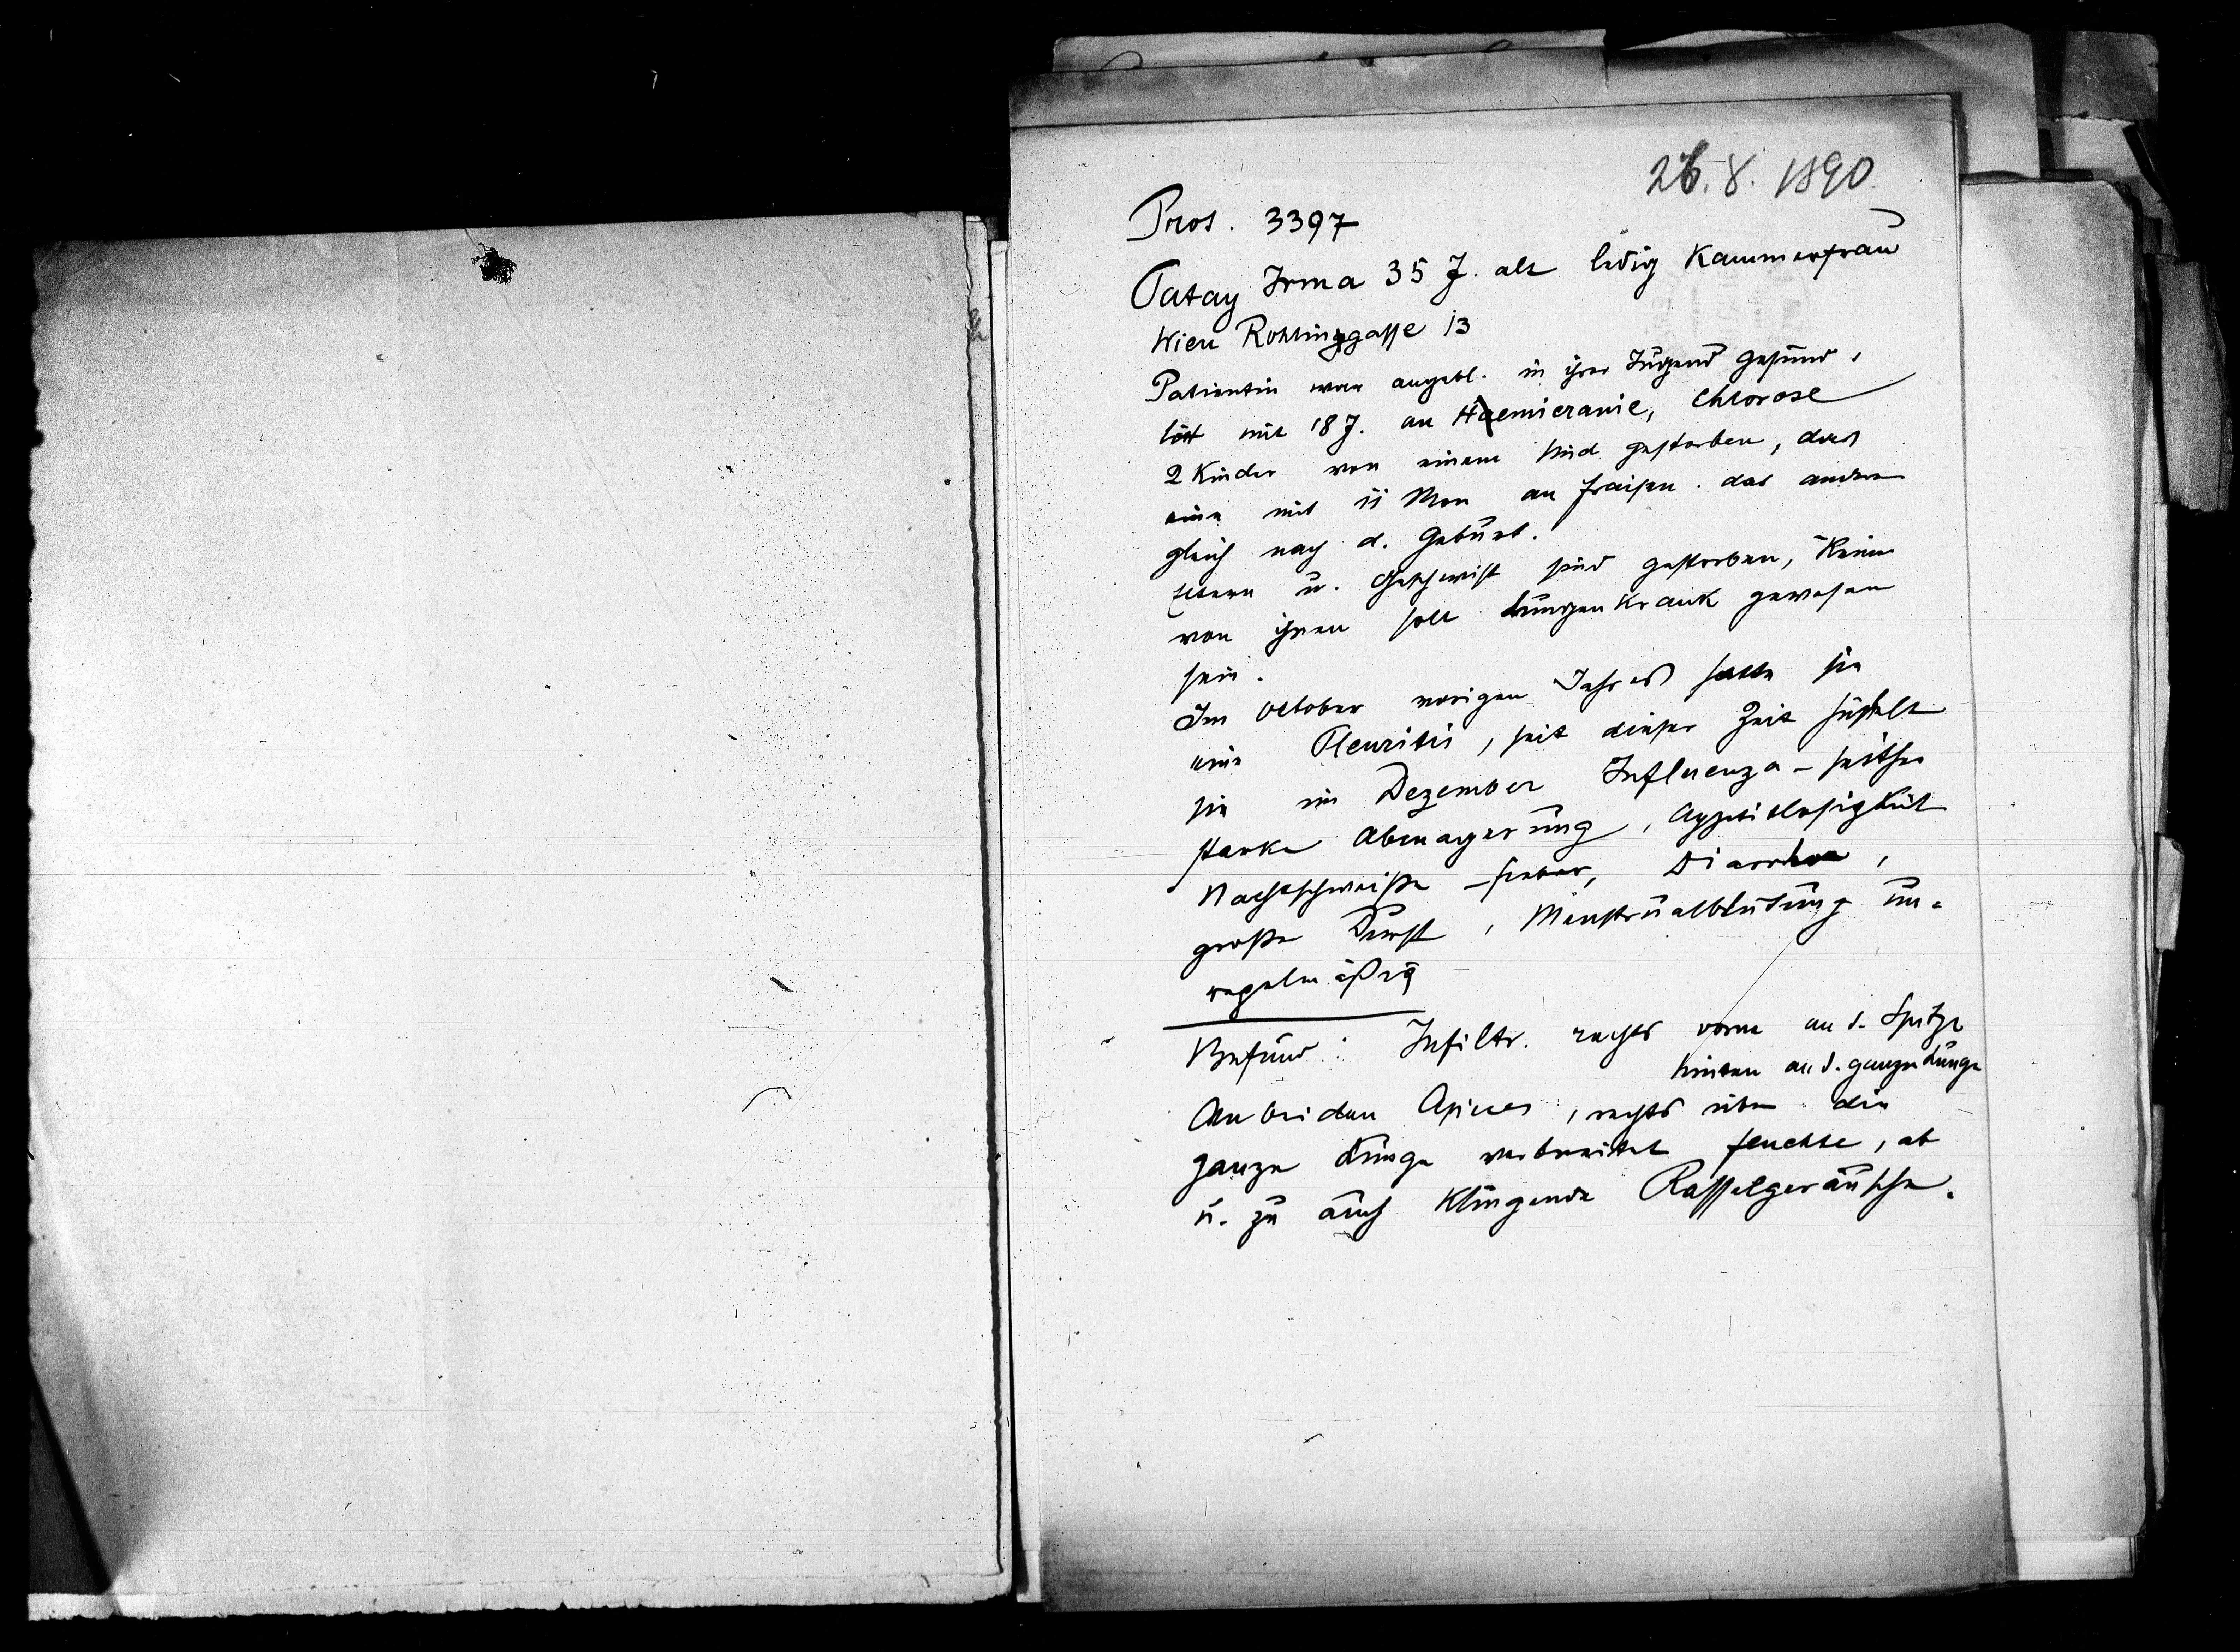 26. 8. 1890
Pros. 3397
Patay Irma 35 J. alt ledig Kammerfrau
Wien Rohlinggasse 13
Patientin war angebl. in ihrer Jugend gesund,
litt mit 18 J. an Hemicranie, Chlorose
2 Kinder von einem sind gestorben, das
eine mit 11 Mon an Fraisen. das andere
gleich nach d. Geburt.
Eltern u. Geschwist sind gestorben, Keiner
von ihnen soll lungenkrank gewesen
sein.
Im October vorigen Jahres hatte sie
eine Pleuritis, seit dieser Zeit hüstelt
sie im Dezember Influenza - seither
starke Abmagerung, Appetitlosigkeit
Nachtschweiße - Fieber, Diarrhoe,
große Durst, Menstrualblutung un-
regelmäßig
Befund: Infiltr. rechts vorne an d. Spitze
hinten an d. ganze Lunge
An beiden Apices, rechts über die
ganze Lunge verbreitet feuchte, ab
u. zu auch klingende Rasselgeräusche.